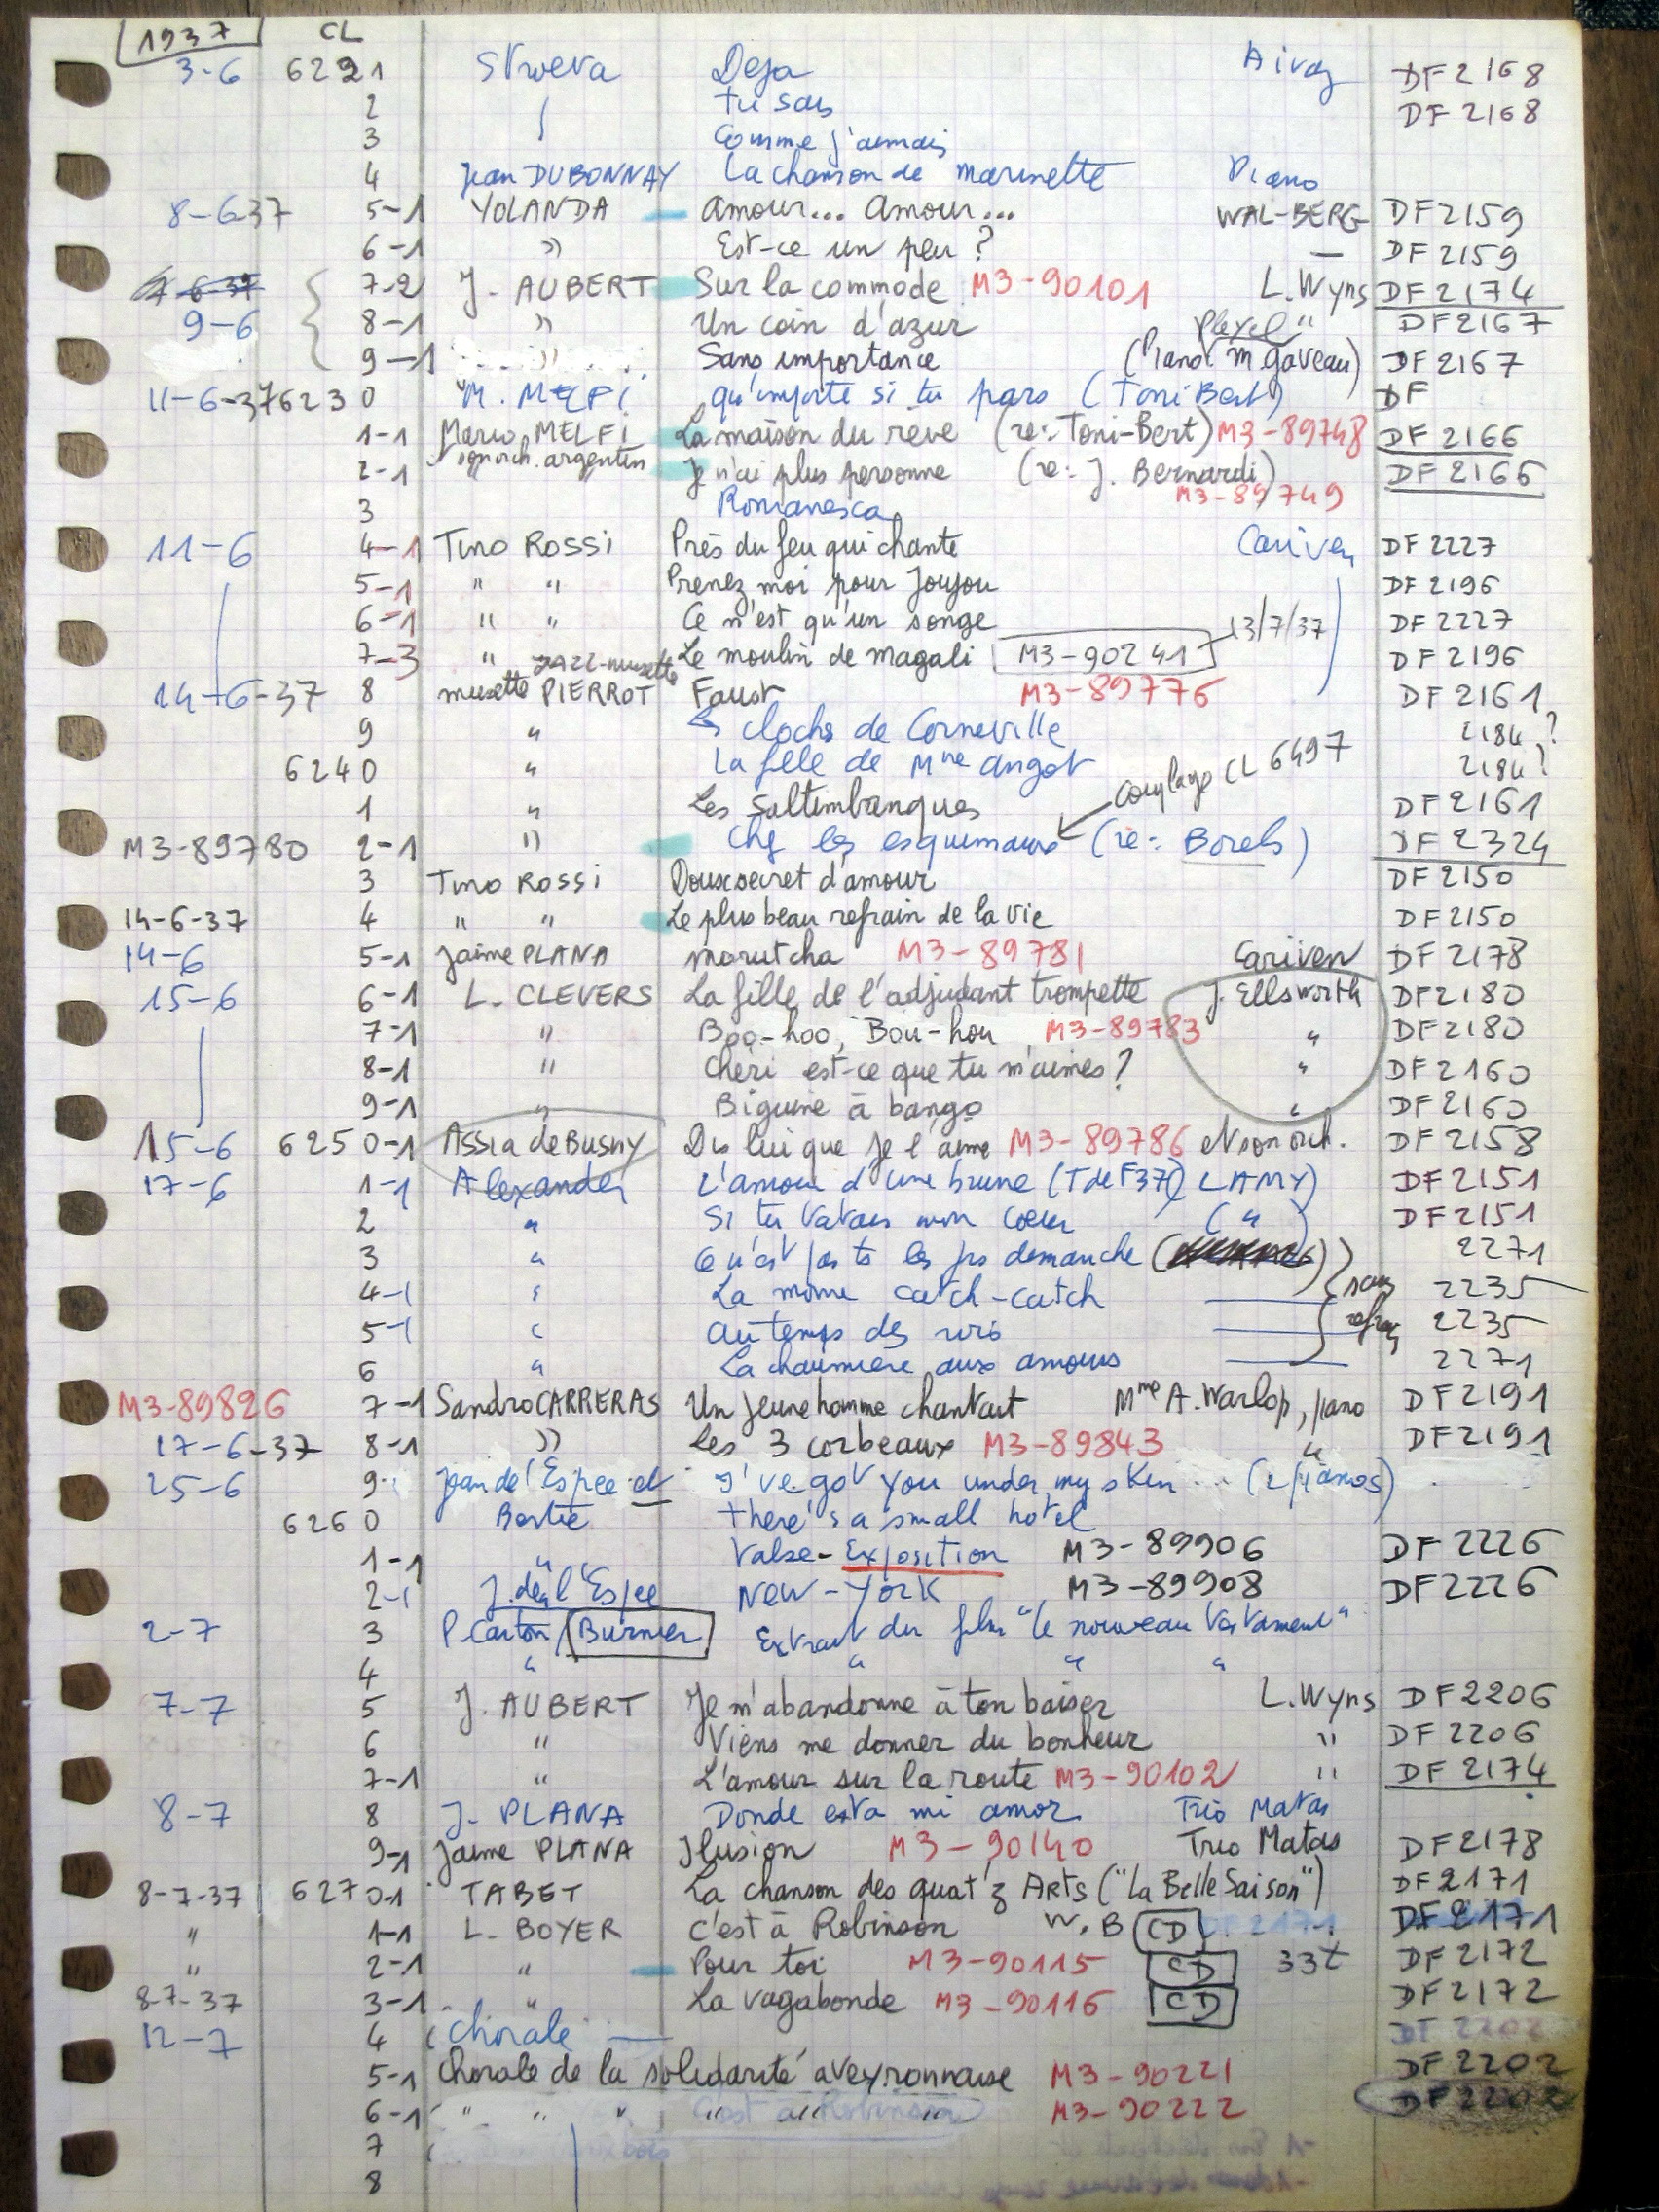 1937 CL
3-6 6221 Stroeva Deja Aivaz DF 2168
2 tu sais DF 2168
3 Comme j'aimais
4 Jean DUBONNAY La chanson de marinette Piano
8-6-37 5-1 YOLANDA amour... amour... WAL-BERG DF 2159
6-1 " Est-ce un peu ? — DF 2159
7-2 J. AUBERT Sur la commode M3-90101 L. Wyns DF 2174
9-6 8-1 " Un coin d'azur Pleyel " DF 2167
9-1 Sans importance (Piano: M Gaveau) DF 2167
11-6-37 6230 M. MELFI qu'importe si tu pars (Toni Bert) DF
1-1 Mario MELFI La maison du rêve (re: Toni-Bert) M3-89748 DF 2166
son orch. argentin
2-1 Je n'ai plus personne (re: J. Bernardi) DF 2166
M3-89749
3 Romanesca
11-6 4-1 Tino ROSSI Près du feu qui chante Cariven DF 2227
5-1 " " Prenez moi pour joujou DF 2196
6-1 " " Ce n'est qu'un songe 13/7/37 DF 2227
7-3 " Le moulin de magali M3-90241 DF 2196
JAZZ-musette
14-6-37 8 musette PIERROT Faust M3-89776 DF 2161
9 " clochs de Corneville 2184 ?
6240 " La fille de Mme angot 2184 ?
couplage CL 6497
1 " Les Saltimbanques DF 2161
M3-89780 2-1 " Chez les esquimaux (re: Borels) DF 2324
3 Tino ROSSI Doux secret d'amour DF 2150
14-6-37 4 " " Le plus beau refrain de la vie DF 2150
14-6 5-1 Jaime PLANA marutcha M3-89781 Cariven DF 2178
15-6 6-1 L. CLEVERS La fille de l'adjudant trompette J. Ellsworth DF 2180
7-1 " Boo-hoo, Bou-hou M3-89783 " DF 2180
8-1 " Chéri est-ce que tu m'aimes ? " DF 2160
9-1 " Biguine à bango " DF 2160
15-6 6250-1 Assia de BUSNY Dis lui que je l'aime M3-89786 et son orch. DF 2158
17-6 1-1 Alexander L'amour d'une brune (T de F 37) LAMY) DF 2151
2 " Si tu mon coeur ( " ) DF 2151
3 " Ce n'est pas ts les jrs dimanche 2271
4-1 " La môme catch-catch sans 2235
5-1 " au temps des rois refrain 2235
6 " La chaumière aux amours 2271
M3-89826 7-1 Sandro CARRERAS Un jeune homme chantait Mme A. Warlop, piano DF 2191
17-6-37 8-1 " Les 3 corbeaux M3-89843 " DF 2191
25-6 9 Jean de l'Espée et I've got you under my skin (2 pianos)
6260 Bertie there's a small hotel
1-1 " Valse-Exposition M3-89906 DF 2226
2-1 J. de l'Espée New-York M3-89908 DF 2226
2-7 3 P. Carton/Burnier Extrait du film "le nouveau testament"
4 " " " "
7-7 5 J. AUBERT Je m'abandonne à ton baiser L. Wyns DF 2206
6 " Viens me donner du bonheur " DF 2206
7-1 " L'amour sur la route M3-90102 " DF 2174
8-7 8 J. PLANA Donde esta mi amor Trio Matas
9-1 Jaime PLANA Ilusion M3-90140 Trio Matas DF 2178
8-7-37 6270-1 TABET La chanson des quat'z Arts ("La Belle Saison") DF 2171
" 1-1 L. BOYER c'est à Robinson W. B CD DF 2171
" 2-1 " Pour toi M3-90115 CD 33t DF 2172
8-7-37 3-1 " La vagabonde M3-90116 CD DF 2172
12-7 4 (Chorale — DF 2202
5-1 Chorale de la solidarité aveyronnaise M3-90221 DF 2202
6-1 " " " " " " M3-90222 DF 2202
7
8